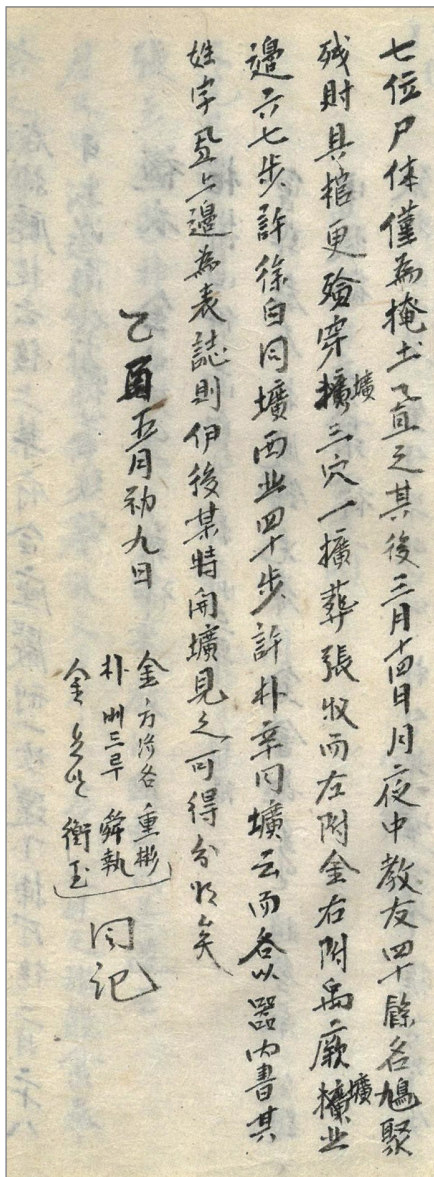 七位尸体僅為掩土而置之其後三月十四日月夜中教友四十餘名鳩聚
残財具棺更殮穿擴壙三穴一擴葬張牧而左附金右附禹厥擴壙北
邉六七步許徐白同壙西北四十步許朴辛同壙云而各以器内書其
姓字置上邉為表誌則伊後某時開壙見之可得分明矣
乙酉五月初九日
金 方济各 重彬
朴 베드루 舜執
金 衡玉
同記